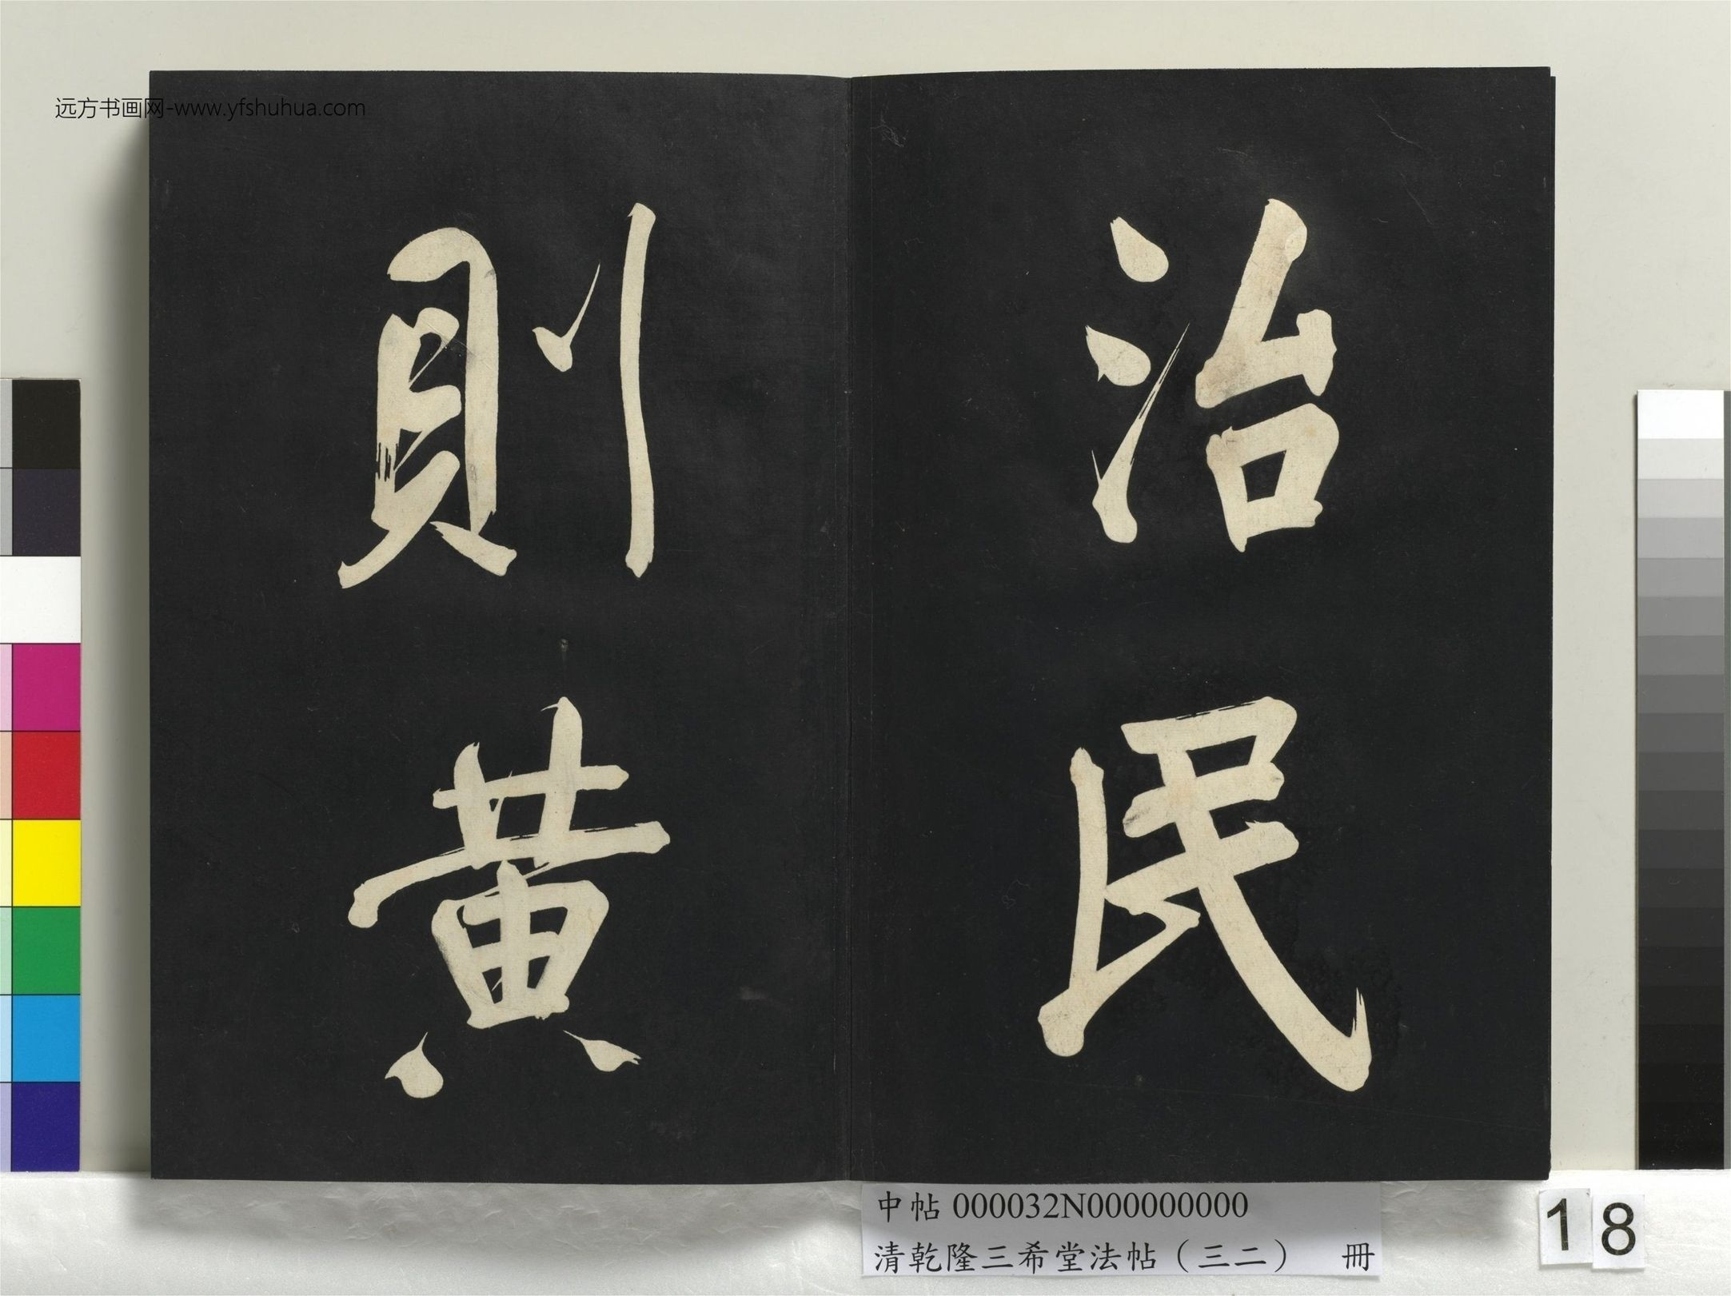 远方书画网-www.yfshuhua.com
治民
則黄
中帖 000032N000000000
清乾隆三希堂法帖（三二） 冊
18